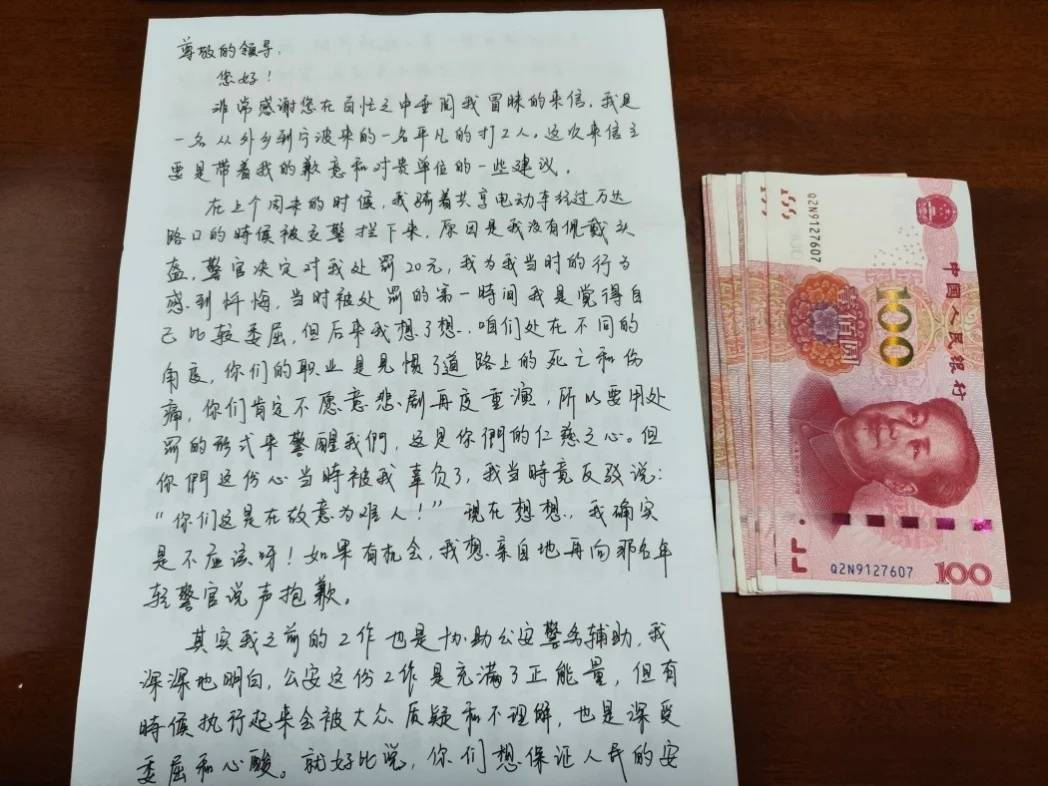 尊敬的领导,
您好!
非常感谢您在百忙之中垂阅我冒昧的来信,我是
一名从外乡到宁波来的一名平凡的打工人。这次来信主
要是带着我的歉意和对贵单位的一些建议。
在上个周末的时候,我骑着共享电动车经过万达
路口的時候被交警拦下来,原因是我没有佩戴头
盔,警官决定对我处罚20元,我为我当时的行为
感到忏悔,当时被处罚的第一時间我是觉得自
己比较委屈,但后来我想了想,咱们处在不同的
角度,你们的职业是见惯了道路上的死亡和伤
痛,你们肯定不愿意悲剧再度重演,所以要用处
罚的形式来警醒我們,这是你們的仁慈之心。但
你們这份心当時被我辜负了,我当時竟反驳说:
“你们这是在故意为难人!”现在想想,我确实
是不应该呀!如果有机会,我想亲自地再向那名年
轻警官说声抱歉。
其实我之前的工作也是协助公安警务辅助,我
深深地明白,公安这份工作是充满了正能量,但有
時候执行起来会被大众质疑和不理解,也是深受
委屈和心酸。就好比说,你们想保证人民的安
Q2N9127607
中国人民银行
壹佰圆
100
Q2N9127607
100